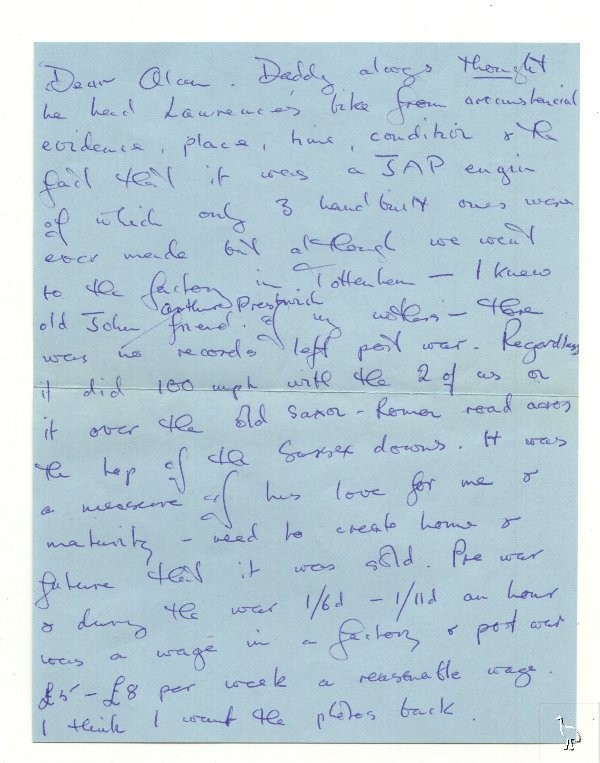 Dear Alan. Daddy always thought
he had Lawrence's bike from circumstancial
evidence, place, time, condition & the
fact that it was a JAP engin
of which only 3 hand built ones were
ever made but although we went
to the factory in Tottenham — I knew
arthur Prestwich
old John friend. of my mothers — there
was no records left post war. Regardless
it did 100 mph with the 2 of us on
it over the old Saxon - Roman road across
the top of the Sussex downs. It was
a measure of his love for me &
maturity - need to create home &
future that it was sold. Pre war
& during the war 1/6d - 1/11d an hour
was a wage in a factory & post war
£5 - £8 per week a reasonable wage.
I think I want the photos back.